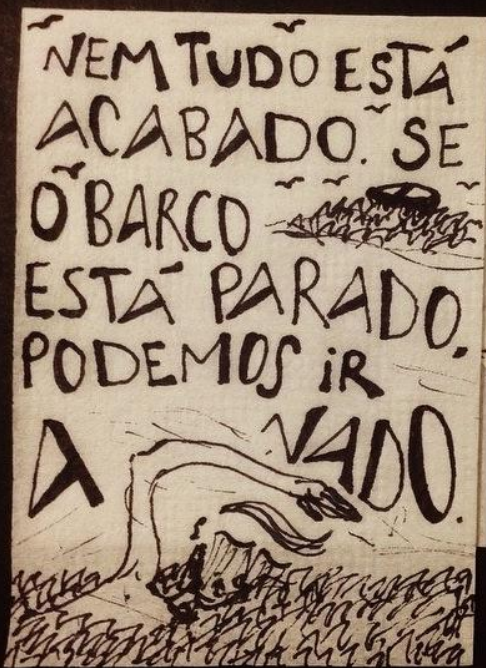 NEM TUDO ESTÁ
ACABADO. SE
O BARCO
ESTÁ PARADO,
PODEMOS iR
A NADO.